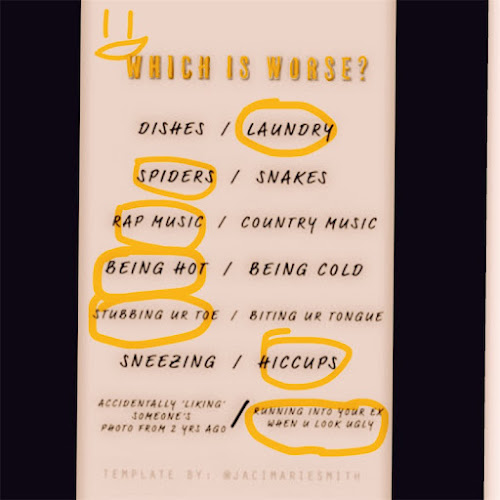 WHICH IS WORSE?
DISHES / LAUNDRY
SPIDERS / SNAKES
RAP MUSIC / COUNTRY MUSIC
BEING HOT / BEING COLD
STUBBING UR TOE / BITING UR TONGUE
SNEEZING / HICCUPS
ACCIDENTALLY 'LIKING'
SOMEONE'S
PHOTO FROM 2 YRS AGO
/
RUNNING INTO YOUR EX
WHEN U LOOK UGLY
TEMPLATE BY: @JACIMARIESMITH